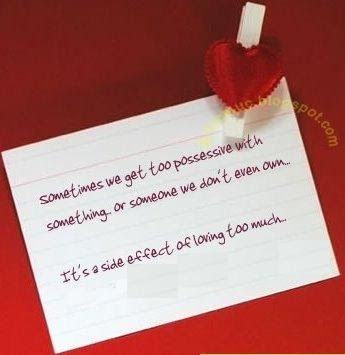 sometimes we get too possessive with
something.. or someone we don't even own...
It's a side effect of loving too much...